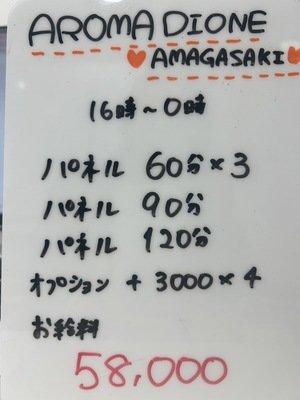 AROMA DIONE
AMAGASAKI
16時～0時
パネル 60分×3
パネル 90分
パネル 120分
オプション + 3000×4
お給料
58,000